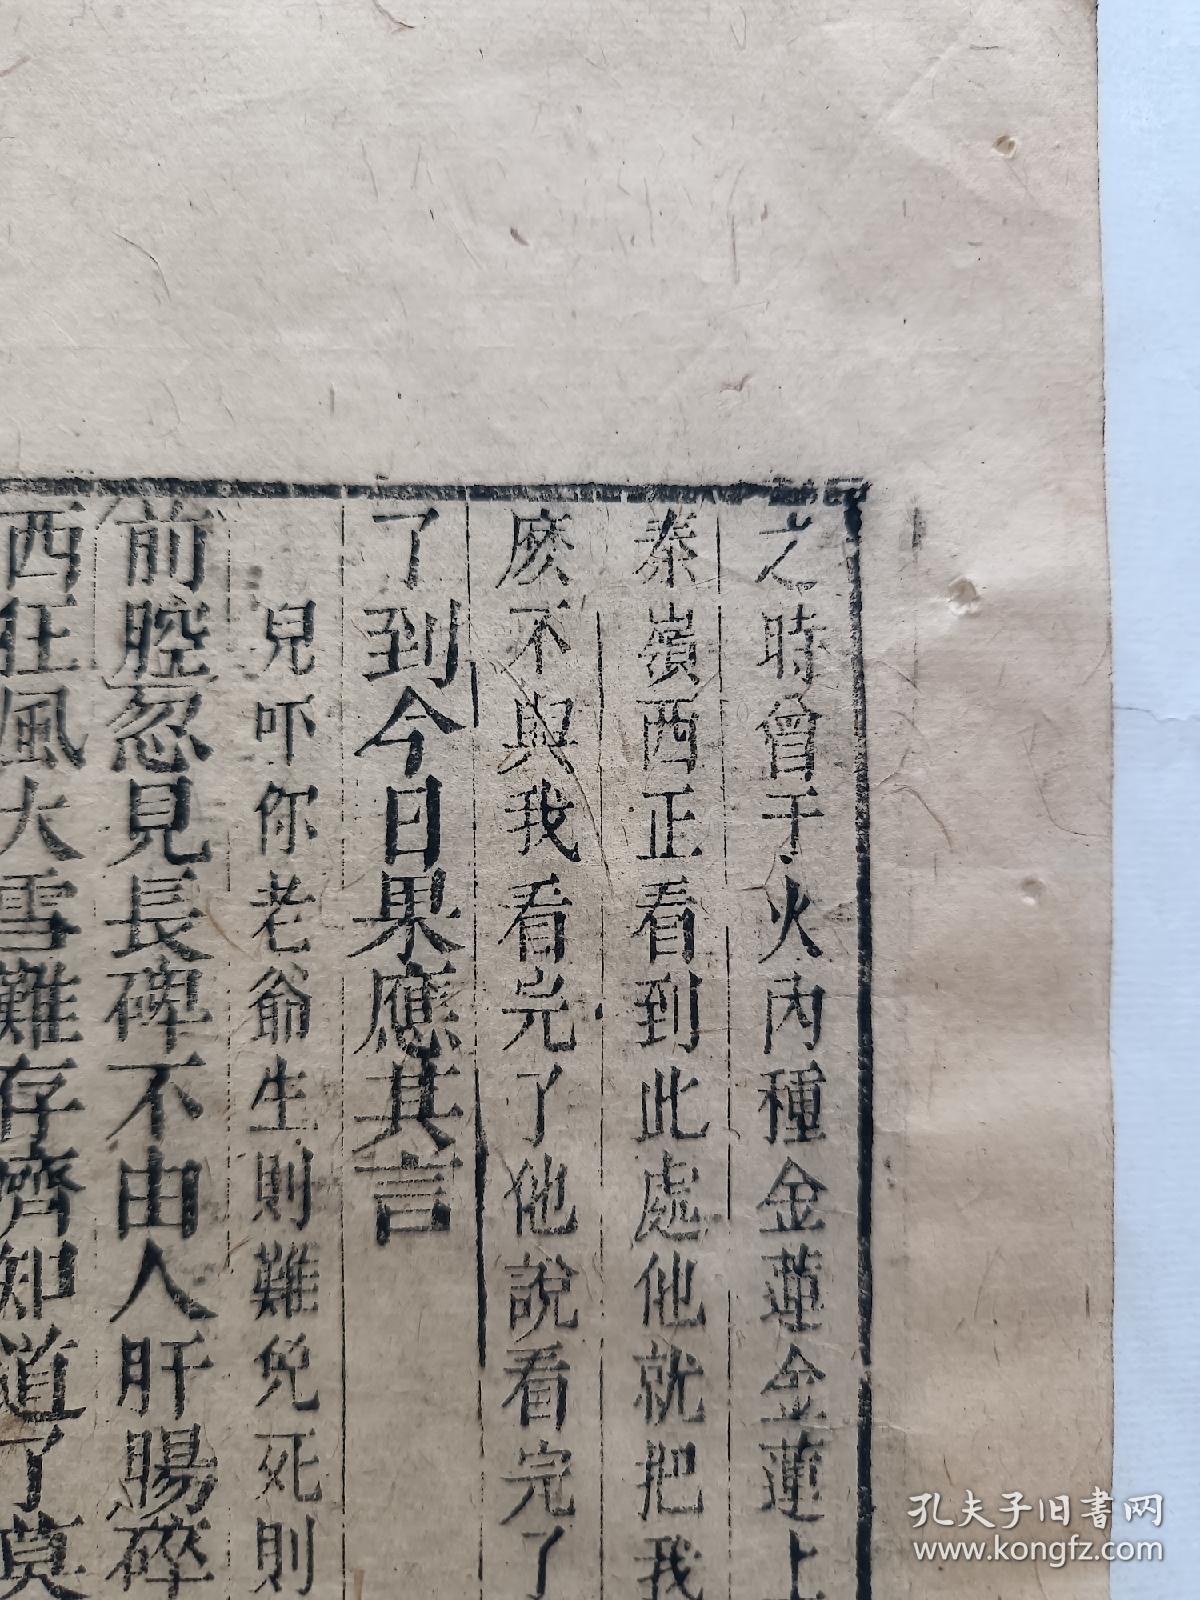 之時曾于火內種金蓮金蓮上
秦嶺西正看到此處他就把我
庅不與我看完了他說看完了
了到今日果應其言
兒吓你老爺生則難免死則
前腔忽見長碑不由人肝腸碎
西狂風大雪難存濟知道了莫
孔夫子旧书网
www.kongfz.com